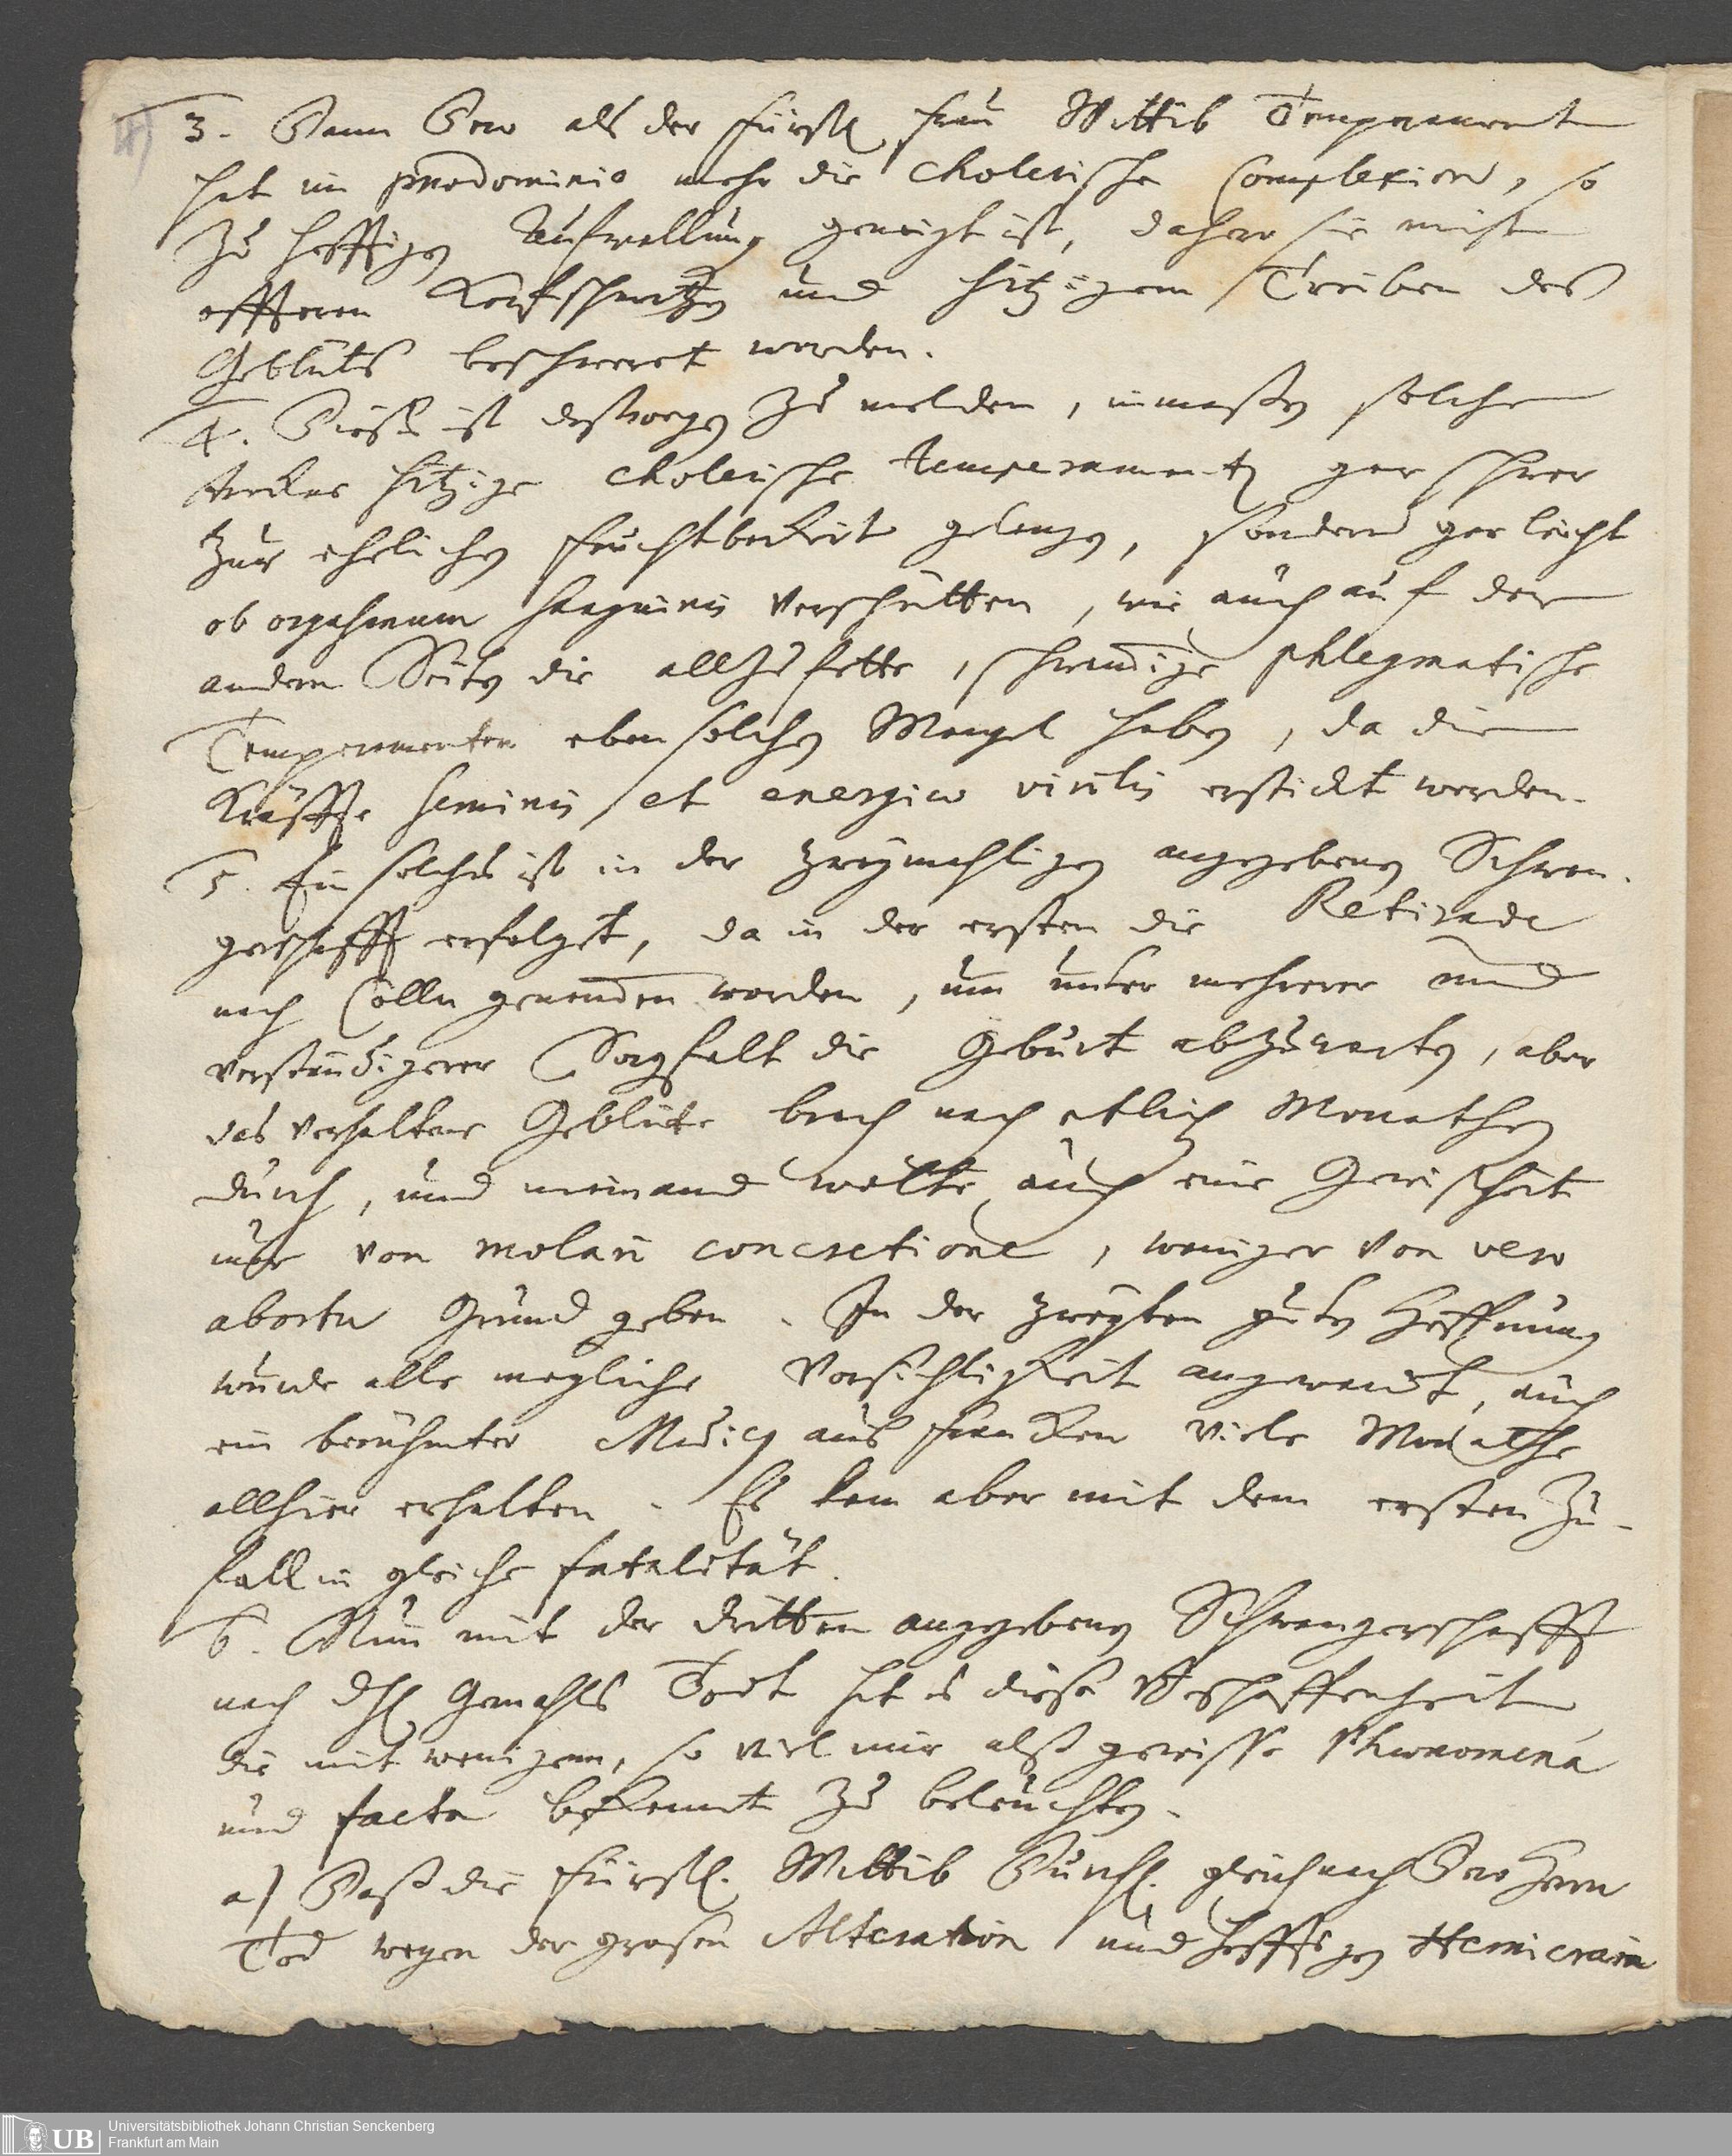 3. Dann Dero als der Fürstl. Frau Wittib Temperament
hat in praedominio mehr die cholerische Complexion, so
zu hefftigen Aufwallung geneigt ist, daher sie mist
offteren Kopfschmertzen und hitzigem Treiben des
Geblüts beschweret worden.
4. Dieß ist deßwegen zu melden, inmaßen solche
trockne hitzige cholerische temperamenta gar schwer
zur ehelichen Fruchtbarkeit gelangen, sondern gar leicht
ob orgasmum sanguinis verschütten, wie auch auf der
andern Seiten die allzufette, schwam̄ige phlegmatische
Temperamenten eben solchen Mangel haben, da die
Kräffte seminis et energiae virilis erstickt werden.
5. Ein solches ist in der zweymahligen angegebenen Schwan-
gerschafft erfolget, da in der ersten die Retirade
nach Cölln genom̄en worden, um unter mehrerer und
verständigerer Sorgfalt die Geburt abzuwarten, aber
das verhaltene Geblüte brach nach etlich Monathen
durch, und niemand wolte auch eine Gewißheit
nur von molari concretione, weniger von vero
abortu Grund geben. In der zweyten guten Hoffnung
wurde alle mögliche Vorsichtigkeit angewandt, auch
ein berühmter Medicus aus Francken viele Monathe
allhier erhalten. Es kam aber mit dem ersten Zu-
fall in gleiche fatalität.
6. Nun mit der dritten angegebenen Schwangerschafft
nach dHl. Gemahls Todt hat es diese Beschaffenheit
die mit wenigem, so viel mir alß gewisse Phaenomena
und facta bekannt zu beleuchten.
a) Daß die Fürstl. Wittib Durchl. gleich nach Dero Herrn
Tod wegen der grosen Alteration und hefftigen Hemicrania
Universitätsbibliothek Johann Christian Senckenberg
Frankfurt am Main
UB